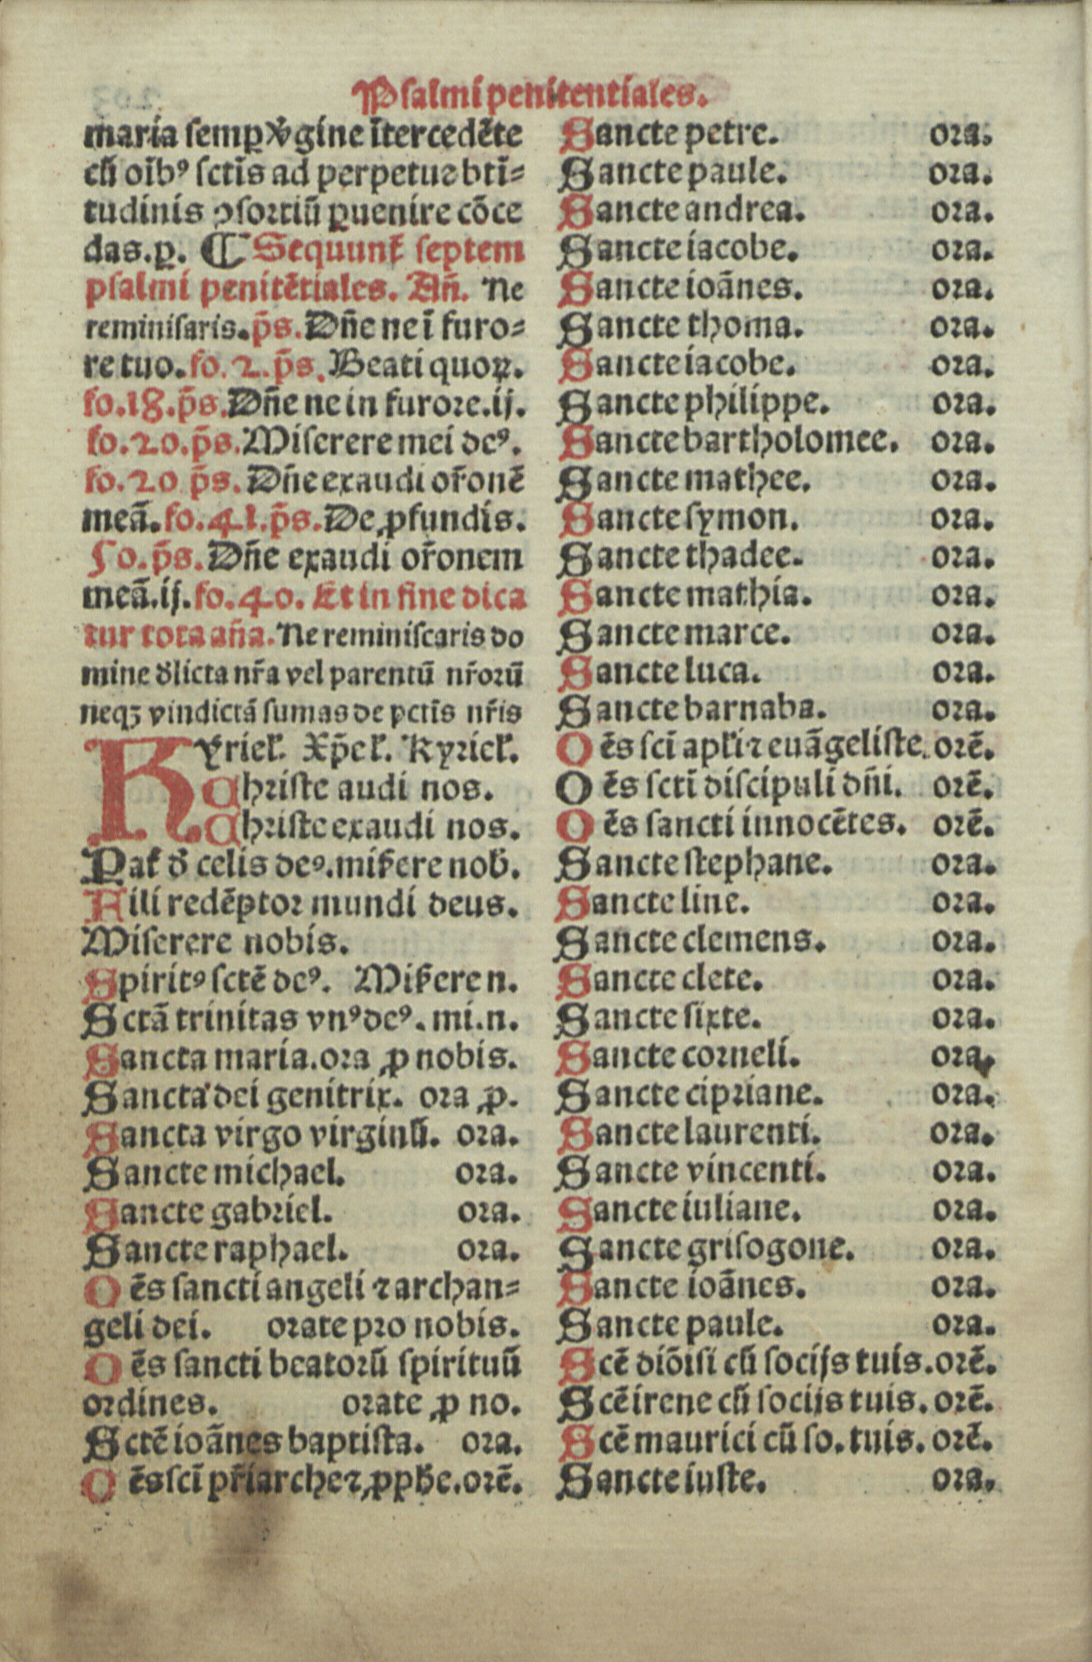 Psalmi penitentiales.
maria semꝑ v̾gine ĩtercedẽte
cũ oĩbꝰ sctĩs ad perpetue btĩ⸗
tudinis ꝯsortiũ ꝑuenire cõce
das.ꝑ. ¶ Sequunt᷑ septem
psalmi penitẽtiales. Añ. Ne
reminisaris.p̃s. Dñe ne ĩ furo⸗
re tuo.fo.2.p̃s. Beati quoꝝ.
fo.18.p̃s. Dñe ne in furore.ij.
fo.20.p̃s. Miserere mei deꝰ.
fo.20 p̃s. Dñe exaudi or̃onẽ
meã.fo.41.p̃s. De ꝓfundis.
50.p̃s. Dñe exaudi or̃onem
meã.ij.fo.40. Et in fine dica
tur tota aña. Ne reminiscaris do
mine d̾licta nr̃a vel parentũ nr̃orũ
neqꝫ vindictã sumas de pctĩs nr̃is
Kyriel̃. Xp̃el̃. Kyriel̃.
Christe audi nos.
Christe exaudi nos.
Pat᷑ d̾ celis deꝰ.mis̃ere nob̾.
Fili redẽptor mundi deus.
Miserere nobis.
Spiritꝰ sctẽ deꝰ. Mis̃ere n.
Sctã trinitas vnꝰ deꝰ. mi.n.
Sancta maria.ora ꝓ nobis.
Sancta dei genitrix. ora ꝓ.
Sancta virgo virginũ. ora.
Sancte michael. ora.
Sancte gabriel. ora.
Sancte raphael. ora.
Oẽs sancti angeli ⁊ archan⸗
geli dei. orate pro nobis.
Oẽs sancti beatorũ spirituũ
ordines. orate ꝓ no.
Sctẽ ioãnes baptista. ora.
Oẽs scĩ pr̃iarche ⁊ ꝓph̃e.orẽ.
Sancte petre. ora.
Sancte paule. ora.
Sancte andrea. ora.
Sancte iacobe. ora.
Sancte ioãnes. ora.
Sancte thoma. ora.
Sancte iacobe. ora.
Sancte philippe. ora.
Sancte bartholomee. ora.
Sancte mathee. ora.
Sancte symon. ora.
Sancte thadee. ora.
Sancte mathia. ora.
Sancte marce. ora.
Sancte luca. ora.
Sancte barnaba. ora.
Oẽs scĩ apl̃i ⁊ euãgeliste. orẽ.
Oẽs sctĩ discipuli dñi. orẽ.
Oẽs sancti innocẽtes. orẽ.
Sancte stephane. ora.
Sancte line. ora.
Sancte clemens. ora.
Sancte clete. ora.
Sancte sixte. ora.
Sancte corneli. ora.
Sancte cipriane. ora.
Sancte laurenti. ora.
Sancte vincenti. ora.
Sancte iuliane. ora.
Sancte grisogone. ora.
Sancte ioãnes. ora.
Sancte paule. ora.
Scẽ diõisi cũ socijs tuis.orẽ.
Scẽ irene cũ socijs tuis. orẽ.
Scẽ maurici cũ so. tuis. orẽ.
Sancte iuste. ora.